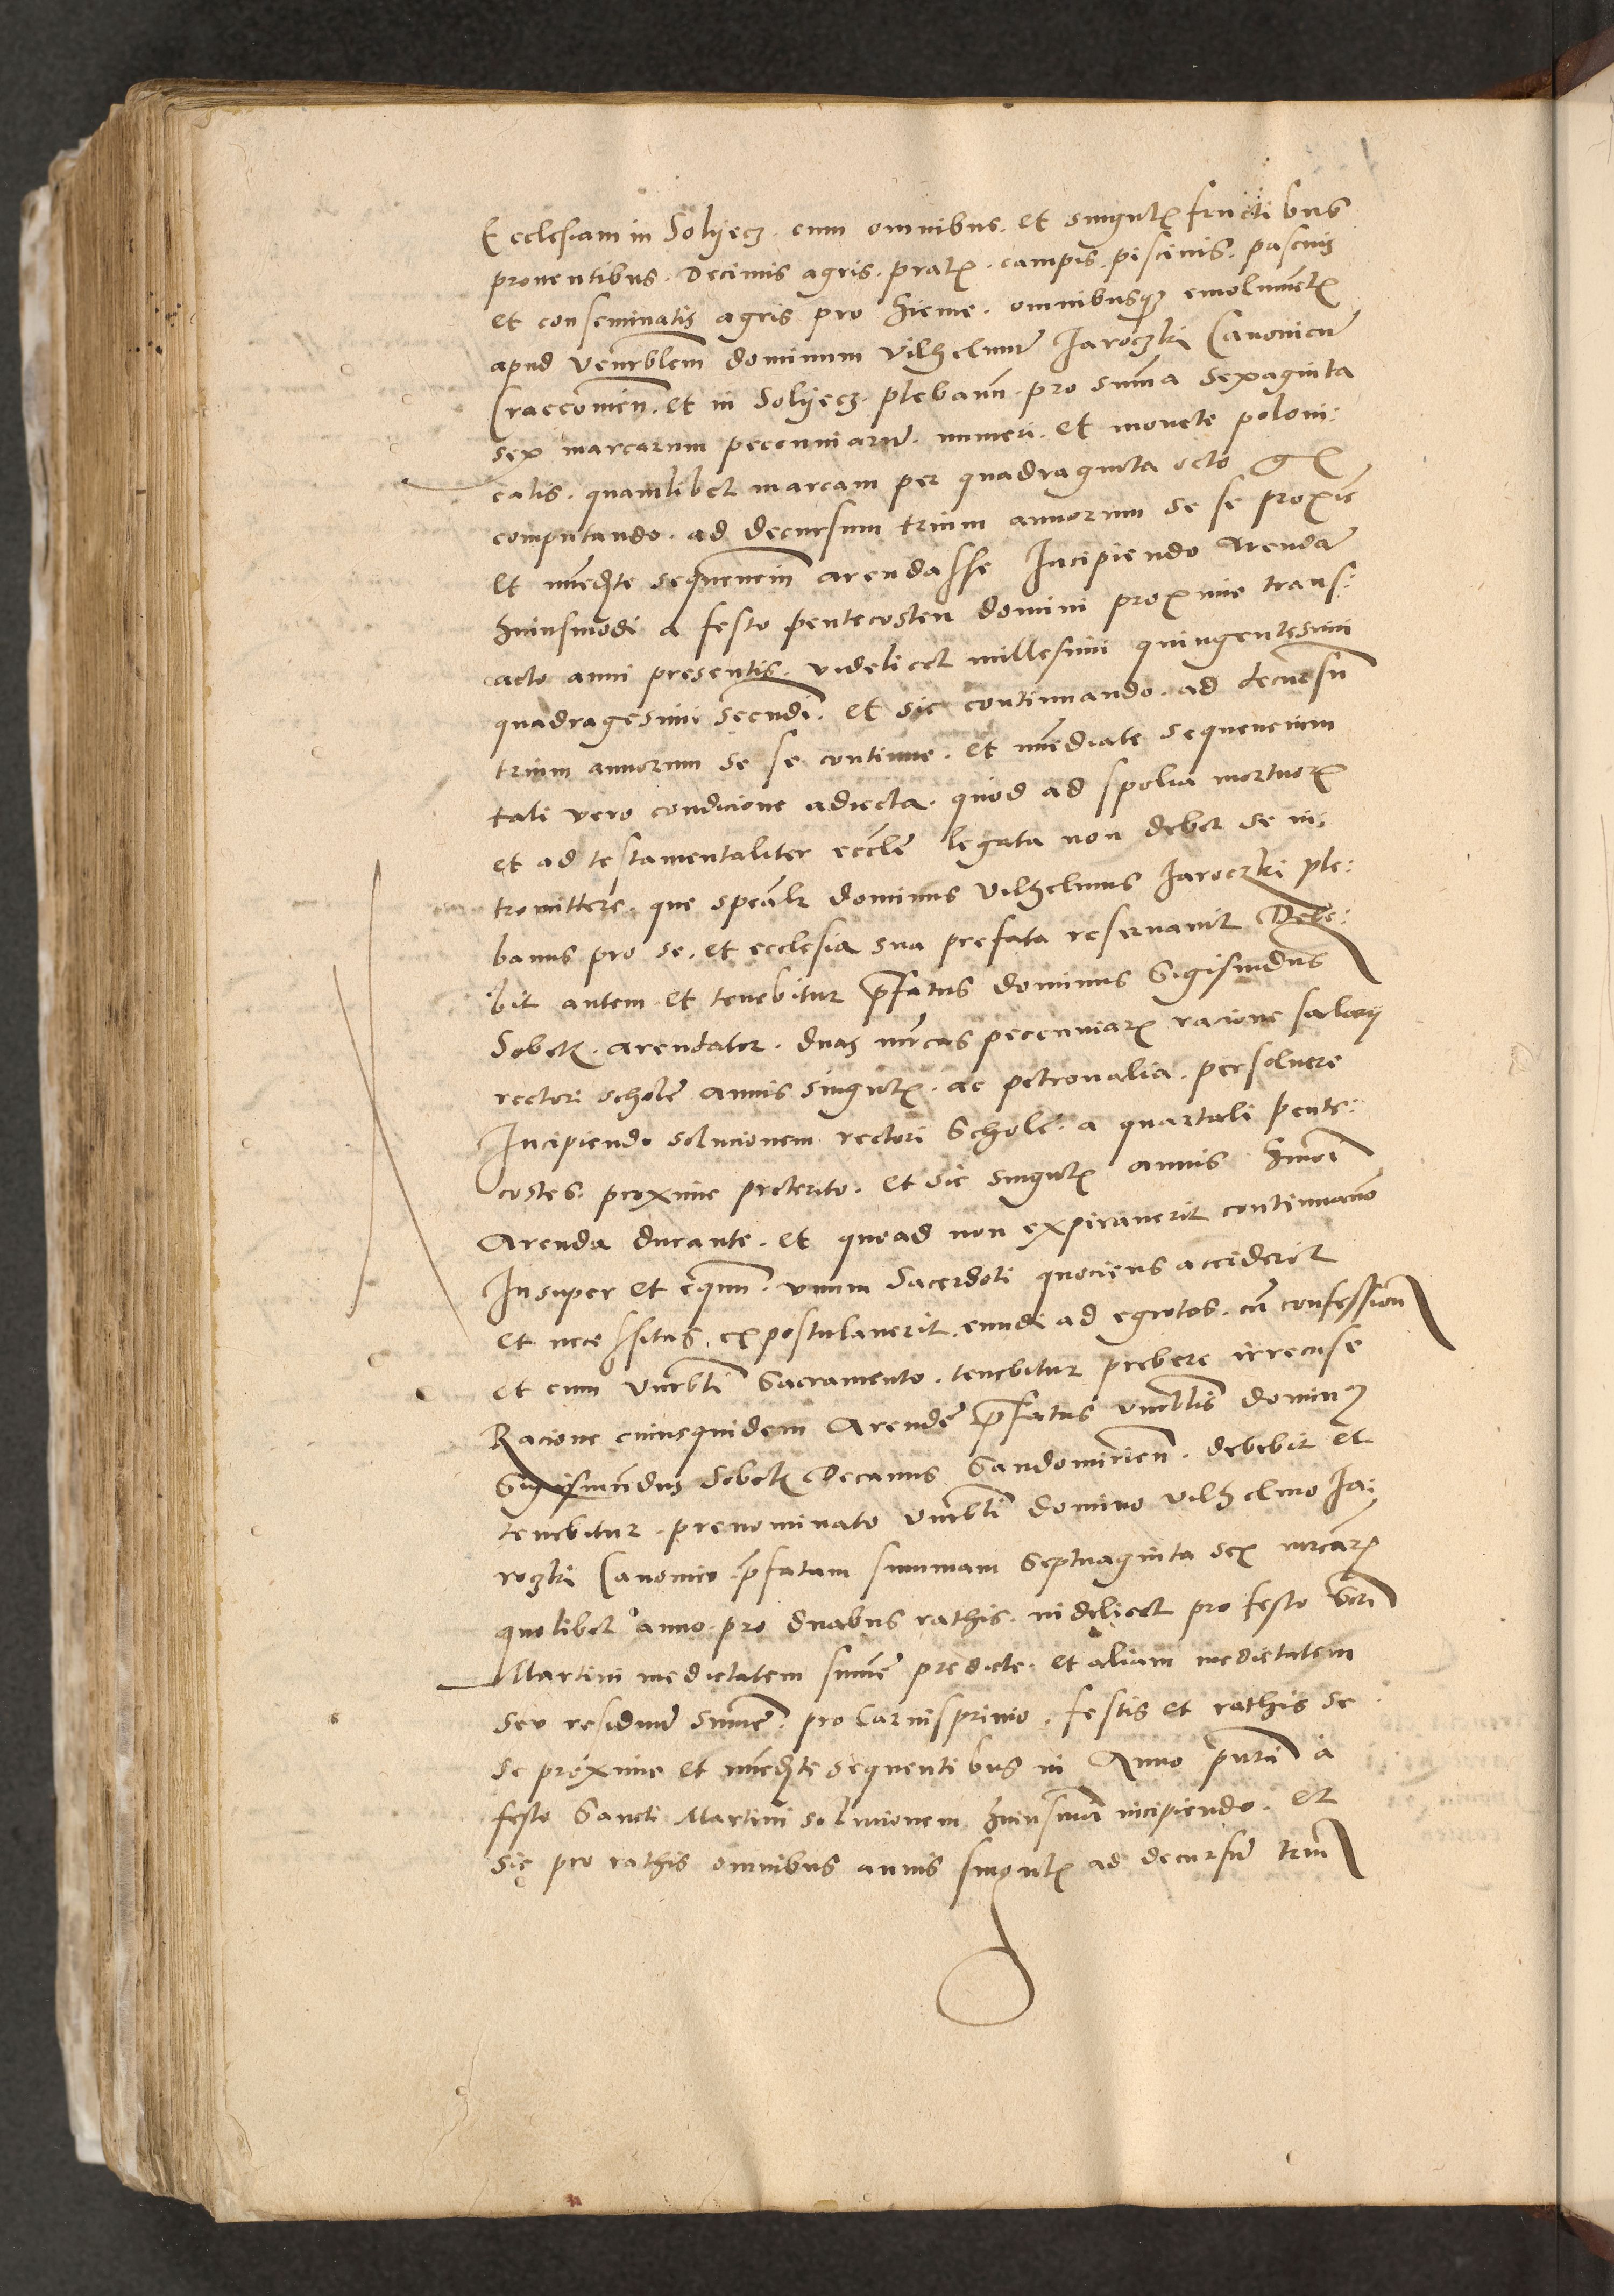 Ecclesiam in Solyecz. cum omnibus. et singul. fructibus
prouentibus. Decimis agris. prat. campis. piscinis. pascuis
et conseminatis agris pro hieme. omnibusq emolument
apud Venerblem dominum Vilhelmum Jaroczki Canonicum
Craccouien. et in Solyecz. plebanum. pro summa sexaginta
sex marcarum peccuniarum. numeri. et monete poloni:
calis. quamlibet marcam per quadraginta octo gr
computando. ad decursum trium annorum se se proxime
et immediate sequencium arendasse Incipiendo Arendam
huiusmodi a festo pentecosten domini proxime trans:
acto anni presentis. videlicet millesimi quingentesimi
quadragesimi secundi. et sic continuando. ad decursum
trium annorum se se continue. et immediate sequencium
tali vero condicione adiecta. quod ad spolia mortuor
et ad testamentaliter ecclesie legata non debet se in:
tromittere. que specialr dominus Vilhelmus Jaroczki ple:
banus pro se. et ecclesia sua prefata reseruauit Debe:
bit autem et tenebitur prefatus dominus Sigismundus
Sebek. arendator. duas mrcas peccuniar racione salarij
rectori schole annis singul. ac petronalia. persoluere
Incipiendo solucionem rectori Schole. a quartali pente:
costes. proxime preterito. et sic singul annis huiusmodi
Arenda durante. et quoad non expirauerit continuando
Insuper et equum. vnum Sacerdoti quociens acciderit
et necessitas expostulauerit. eundi ad egrotos. cum confessione
et cum Venerbli Sacramento. tenebitur prebere irrecuse
Racione cuiusquidem Arende prefatus venerblis dominus
Sigismundus Sebek Decanus Sandomirien. debebit et
tenebitur. prenominato venerbli domino Vilhelmo Ja:
roczki Canonico prefatam summam Septuaginta sex mrcar
quolibet anno. pro duabus rathis. videlicet pro festo Scti
Martini medietatem summe predicte. et aliam medietatem
seu residuum summe. pro Carnispriuio. festis et rathis se
se proxime et immediate sequentibus in Anno pnti a
festo Sancti Martini solucionem huiusmodi incipiendo. et
sic pro rathis omnibus annis singul ad decursum trium